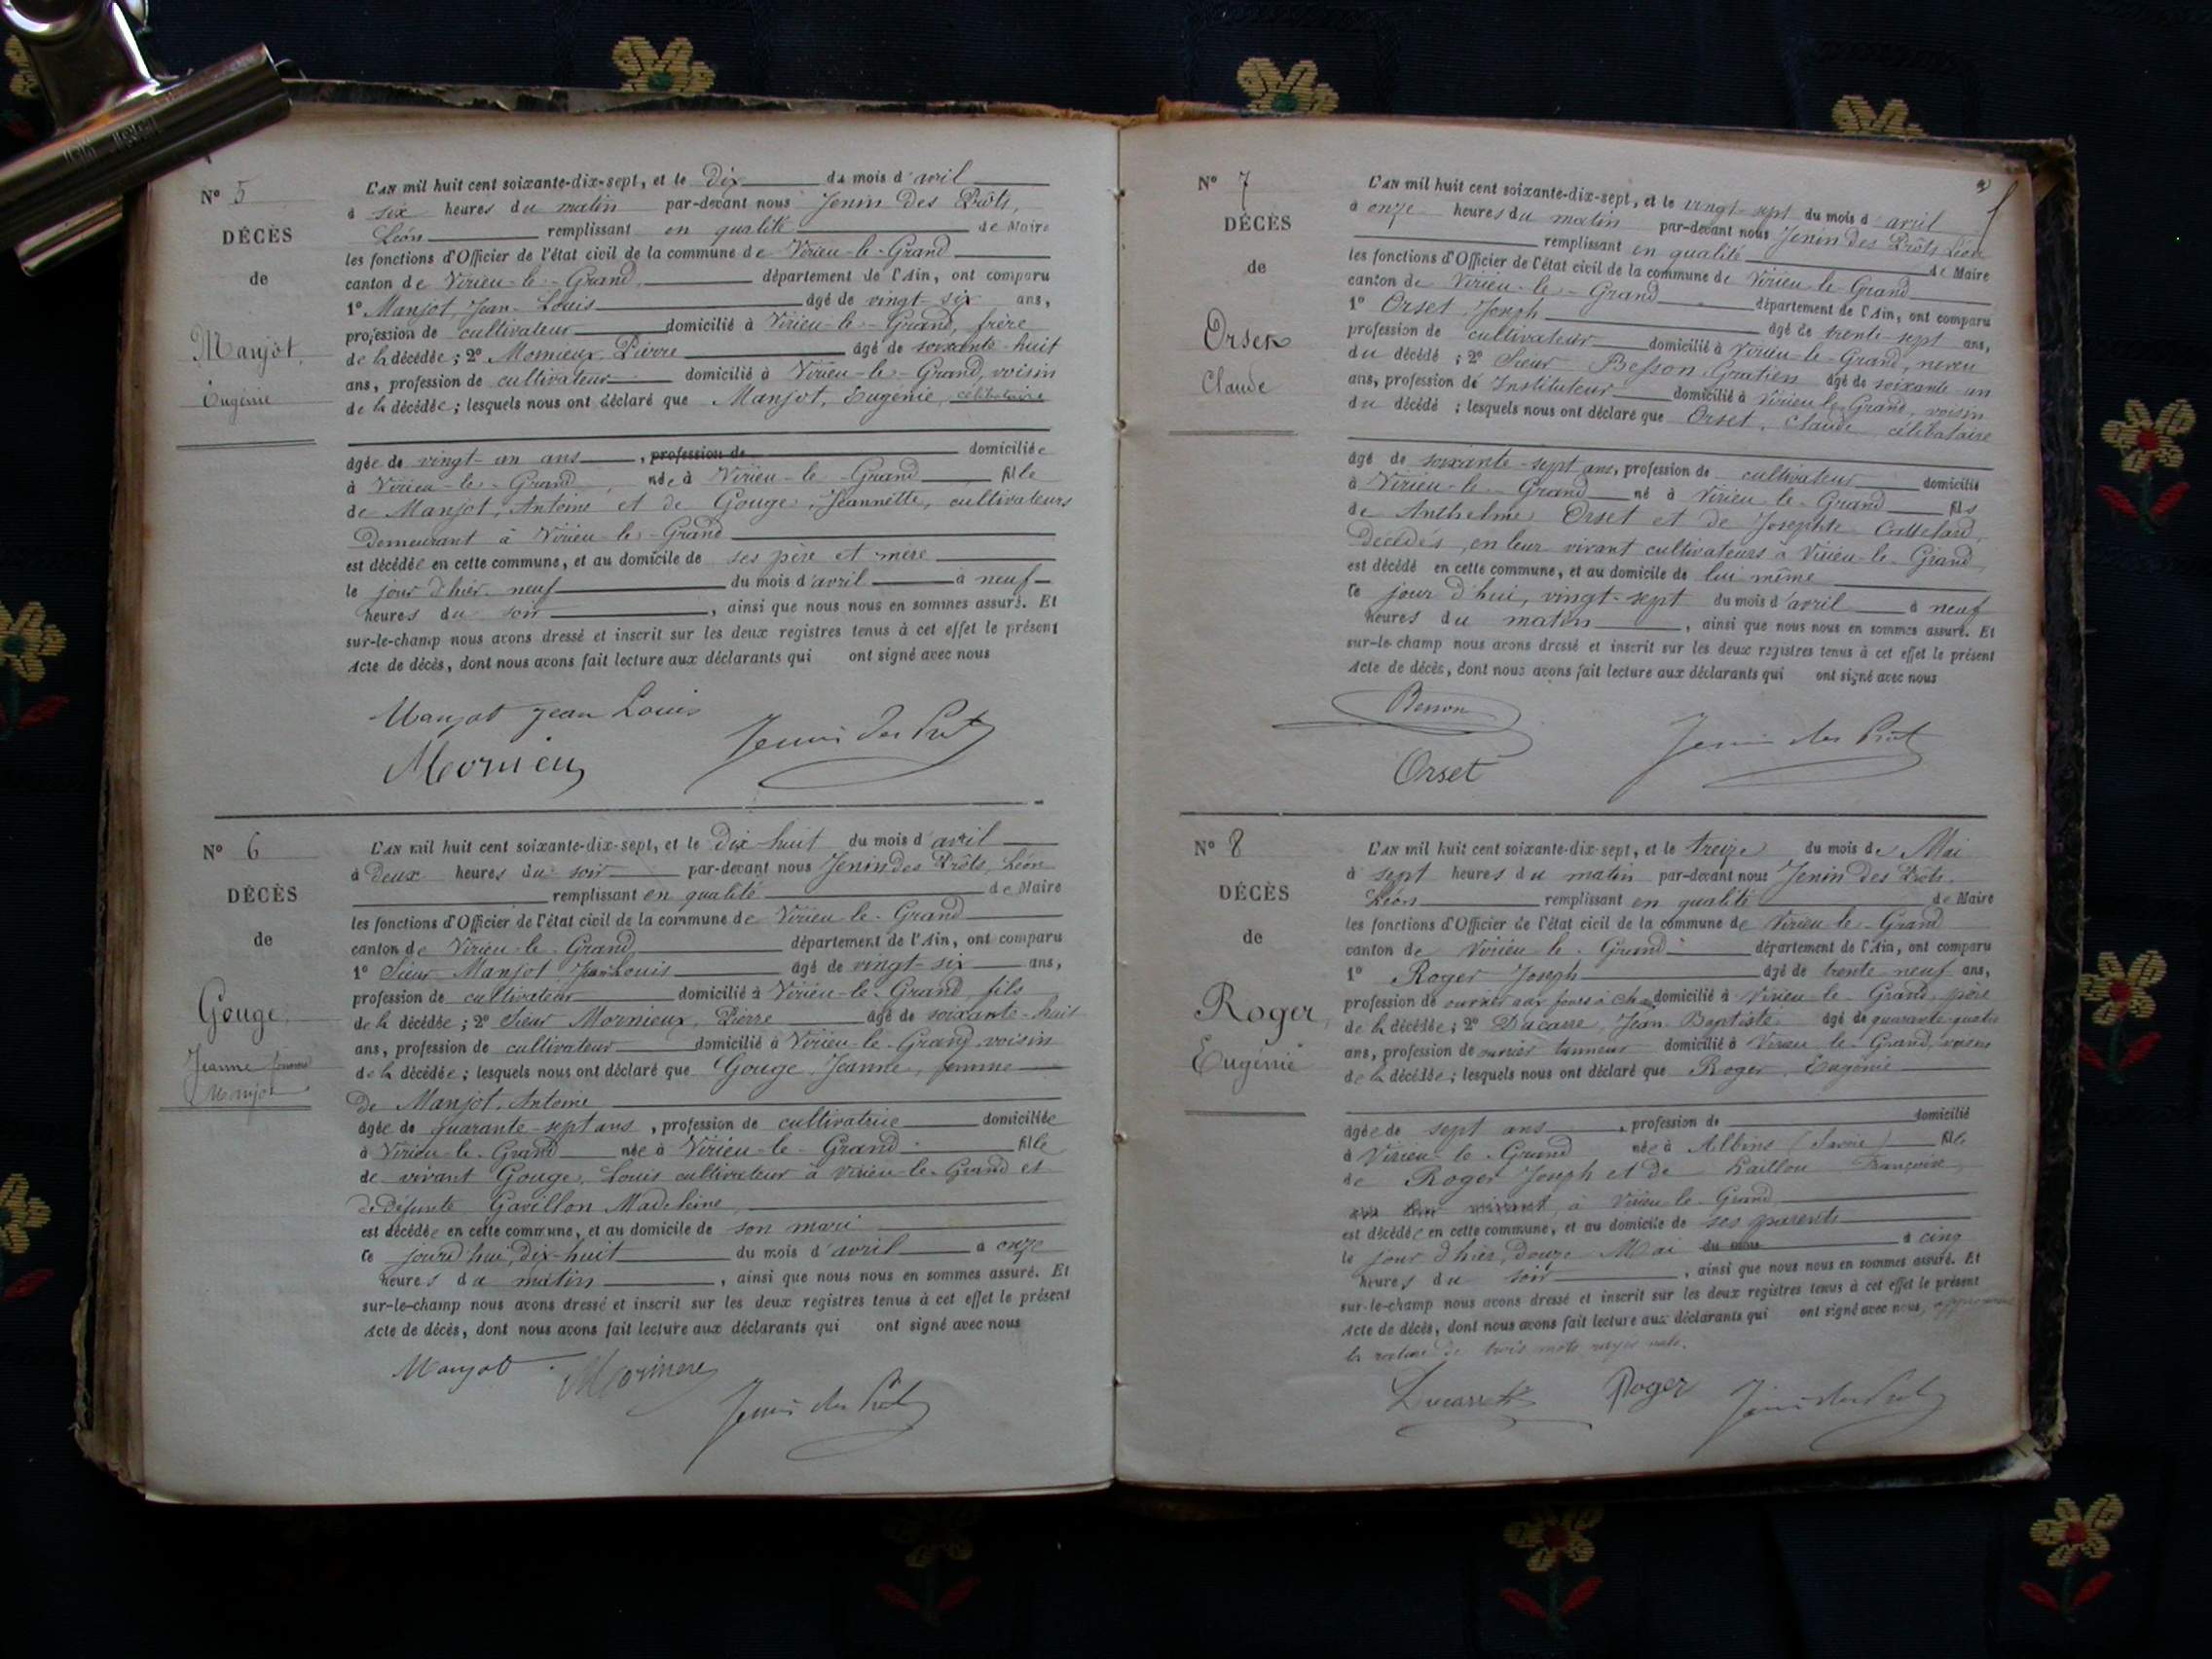 N° 5
DÉCÈS
de
Manjot,
Eugénie
L'AN mil huit cent soixante-dix-sept, et le dix du mois d'avril
à six heures du matin par-devant nous Jenin des Prôts,
Léon remplissant en qualité de Maire
les fonctions d'Officier de l'état civil de la commune de Virieu-le-Grand
canton de Virieu-le-Grand département de l'Ain, ont comparu
1° Manjot, Jean-Louis âgé de vingt-six ans,
profession de cultivateur domicilié à Virieu-le-Grand, frère
de la décédée; 2° Mornieux, Pierre âgé de soixante-huit
ans, profession de cultivateur domicilié à Virieu-le-Grand, voisin
de la décédée; lesquels nous ont déclaré que Manjot, Eugénie, célibataire
âgée de vingt-un ans, profession de domiciliée
à Virieu-le-Grand, née à Virieu-le-Grand fille
de Manjot, Antoine et de Gouge, Jeannette, cultivateurs
demeurant à Virieu-le-Grand
est décédée en cette commune, et au domicile de ses père et mère
le jour d'hier neuf du mois d'avril à neuf
heures du soir, ainsi que nous nous en sommes assuré. Et
sur-le-champ nous avons dressé et inscrit sur les deux registres tenus à cet effet le présent
Acte de décès, dont nous avons fait lecture aux déclarants qui ont signé avec nous
Manjot Jean Louis
Mornieux Jenin des Prôts
N° 6
DÉCÈS
de
Gouge,
Jeanne femme
Manjot
L'AN mil huit cent soixante-dix-sept, et le dix-huit du mois d'avril
à deux heures du soir par-devant nous Jenin des Prôts, Léon
remplissant en qualité de Maire
les fonctions d'Officier de l'état civil de la commune de Virieu-le-Grand
canton de Virieu-le-Grand département de l'Ain, ont comparu
1° Sieur Manjot Jean Louis âgé de vingt-six ans,
profession de cultivateur domicilié à Virieu-le-Grand, fils
de la décédée; 2° Sieur Mornieux, Pierre âgé de soixante-huit
ans, profession de cultivateur domicilié à Virieu-le-Grand voisin
de la décédée; lesquels nous ont déclaré que Gouge, Jeanne, femme
de Manjot, Antoine
âgée de quarante-sept ans, profession de cultivatrice domiciliée
à Virieu-le-Grand née à Virieu-le-Grand fille
de vivant Gouge, Louis cultivateur à Virieu-le-Grand et
de défunte Gavillon Madeleine,
est décédée en cette commune, et au domicile de son mari
ce jourd'hui, dix-huit du mois d'avril à onze
heures du matin, ainsi que nous nous en sommes assuré. Et
sur-le-champ nous avons dressé et inscrit sur les deux registres tenus à cet effet le présent
Acte de décès, dont nous avons fait lecture aux déclarants qui ont signé avec nous
Manjot Mornieux
Jenin des Prôts
N° 7
DÉCÈS
de
Orset
Claude
L'AN mil huit cent soixante-dix-sept, et le vingt-sept du mois d'avril
à onze heures du matin par-devant nous Jenin des Prôts Léon
remplissant en qualité de Maire
les fonctions d'Officier de l'état civil de la commune de Virieu-le-Grand
canton de Virieu-le-Grand département de l'Ain, ont comparu
1° Orset, Joseph âgé de trente-sept ans,
profession de cultivateur domicilié à Virieu-le-Grand, neveu
du décédé; 2° Sieur Besson Gratien âgé de soixante-un
ans, profession de Instituteur domicilié à Virieu-le-Grand, voisin
du décédé; lesquels nous ont déclaré que Orset, Claude célibataire
âgé de soixante-sept ans, profession de cultivateur domicilié
à Virieu-le-Grand né à Virieu-le-Grand fils
de Anthelme Orset et de Josephte
décédés, en leur vivant cultivateurs à Virieu-le-Grand
est décédé en cette commune, et au domicile de lui-même
ce jour d'hui, vingt-sept du mois d'avril à neuf
heures du matin, ainsi que nous nous en sommes assuré. Et
sur-le-champ nous avons dressé et inscrit sur les deux registres tenus à cet effet le présent
Acte de décès, dont nous avons fait lecture aux déclarants qui ont signé avec nous
Besson
Jenin des Prôts
Orset
N° 8
DÉCÈS
de
Roger,
Eugénie
L'AN mil huit cent soixante-dix-sept, et le treize du mois de Mai
à sept heures du matin par-devant nous Jenin des Prôts,
Léon remplissant en qualité de Maire
les fonctions d'Officier de l'état civil de la commune de Virieu-le-Grand
canton de Virieu-le-Grand département de l'Ain, ont comparu
1° Roger Joseph âgé de trente-neuf ans,
profession de ouvrier aux fours à domicilié à Virieu-le-Grand, père
de la décédée; 2° Ducarre, Jean-Baptiste âgé de quarante-quatre
ans, profession de ouvrier tanneur domicilié à Virieu-le-Grand, voisin
de la décédée; lesquels nous ont déclaré que Roger, Eugénie
âgée de sept ans, profession de domicilié
à Virieu-le-Grand née à Albins (Savoie) fille
de Roger Joseph et de Françoise,
vivant, à Virieu-le-Grand
est décédée en cette commune, et au domicile de ses parents
le jour d'hier, douze Mai du mois à cinq
heures du soir, ainsi que nous nous en sommes assuré. Et
sur-le-champ nous avons dressé et inscrit sur les deux registres tenus à cet effet le présent
Acte de décès, dont nous avons fait lecture aux déclarants qui ont signé avec nous,
la rature de trois mots rayés nuls.
Ducarre Roger Jenin des Prôts